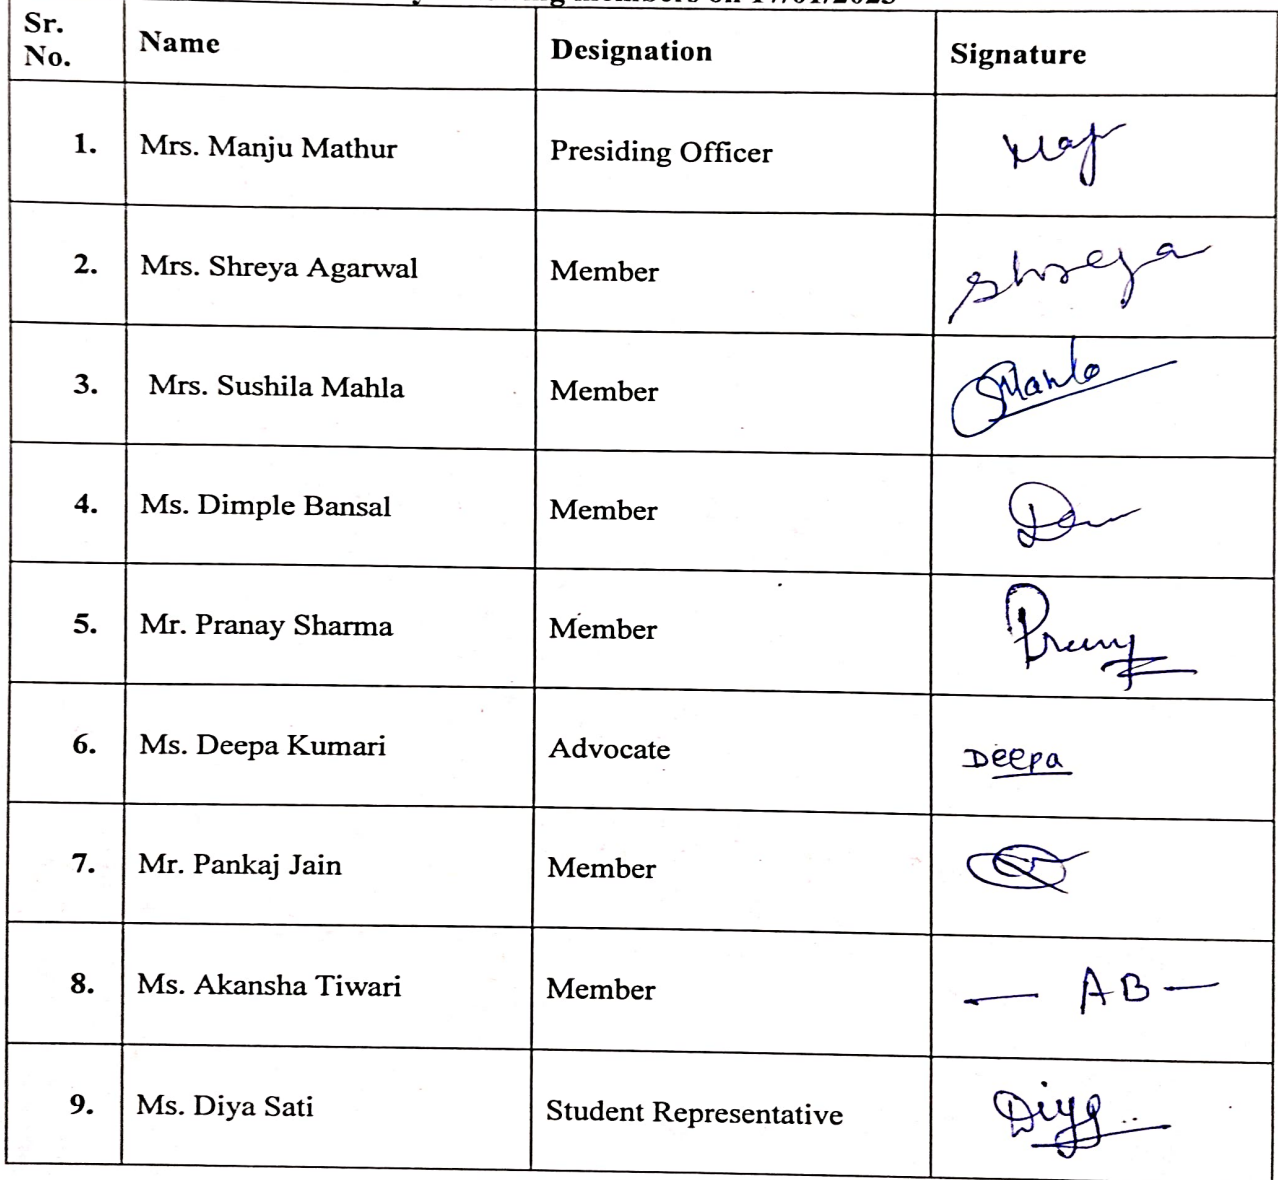 members on 17/01/2023
Sr. No. Name Designation Signature
1. Mrs. Manju Mathur Presiding Officer
2. Mrs. Shreya Agarwal Member Shreya
3. Mrs. Sushila Mahla Member
4. Ms. Dimple Bansal Member
5. Mr. Pranay Sharma Member
6. Ms. Deepa Kumari Advocate Deepa
7. Mr. Pankaj Jain Member
8. Ms. Akansha Tiwari Member — AB —
9. Ms. Diya Sati Student Representative Diya